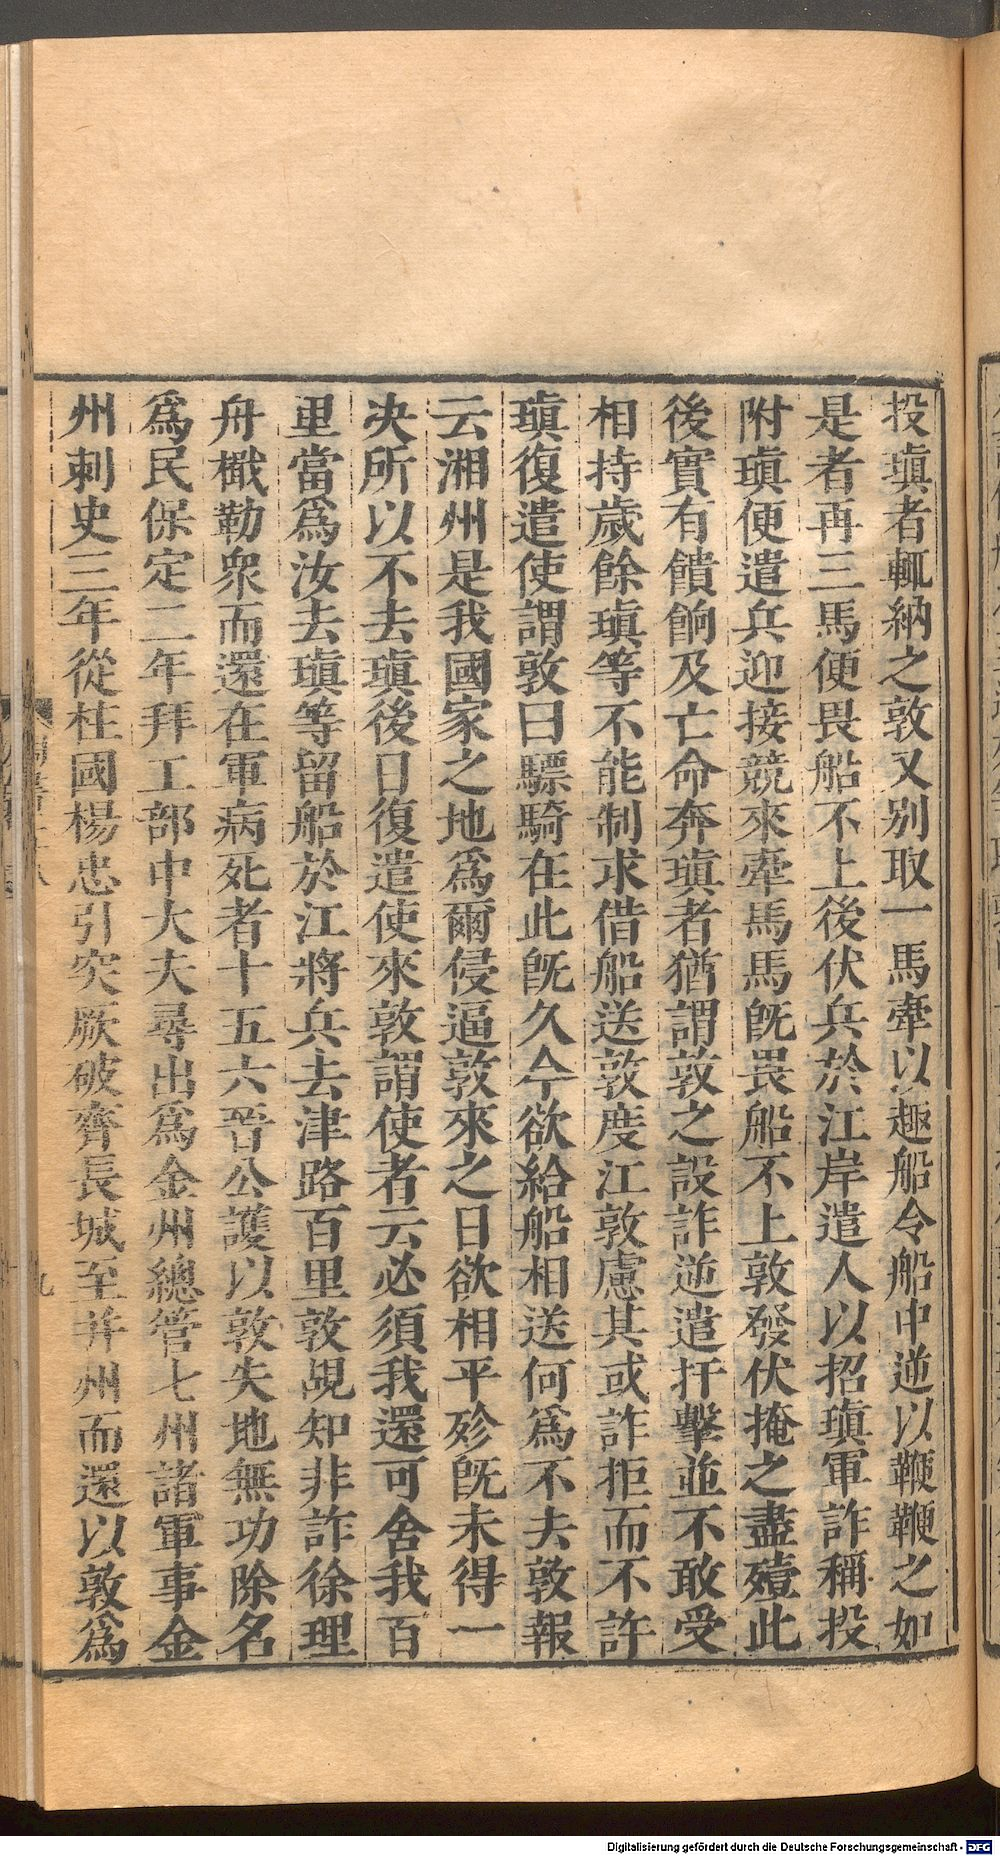 投瑱者輒納之敦又別取一馬牽以趣船令船中逆以鞭鞭之如
是者再三馬便畏船不上後伏兵於江岸遣人以招瑱軍詐稱投
附瑱便遣兵迎接競來牽馬馬旣畏船不上敦發伏掩之盡殪此
後實有饋餉及亡命奔瑱者猶謂敦之設詐逆遣扞擊並不敢受
相持歲餘瑱等不能制求借船送敦度江敦慮其或詐拒而不許
瑱復遣使謂敦曰驃騎在此旣久今欲給船相送何爲不去敦報
云湘州是我國家之地爲爾侵逼敦來之日欲相平殄旣未得一
决所以不去瑱後日復遣使來敦謂使者云必須我還可舍我百
里當爲汝去瑱等留船於江將兵去津路百里敦覘知非詐徐理
舟檝勒衆而還在軍病死者十五六晉公護以敦失地無功除名
爲民保定二年拜工部中大夫尋出爲金州總管七州諸軍事金
州刺史三年從柱國楊忠引突厥破齊長城至并州而還以敦爲
九
Digitalisierung gefördert durch die Deutsche Forschungsgemeinschaft - DFG